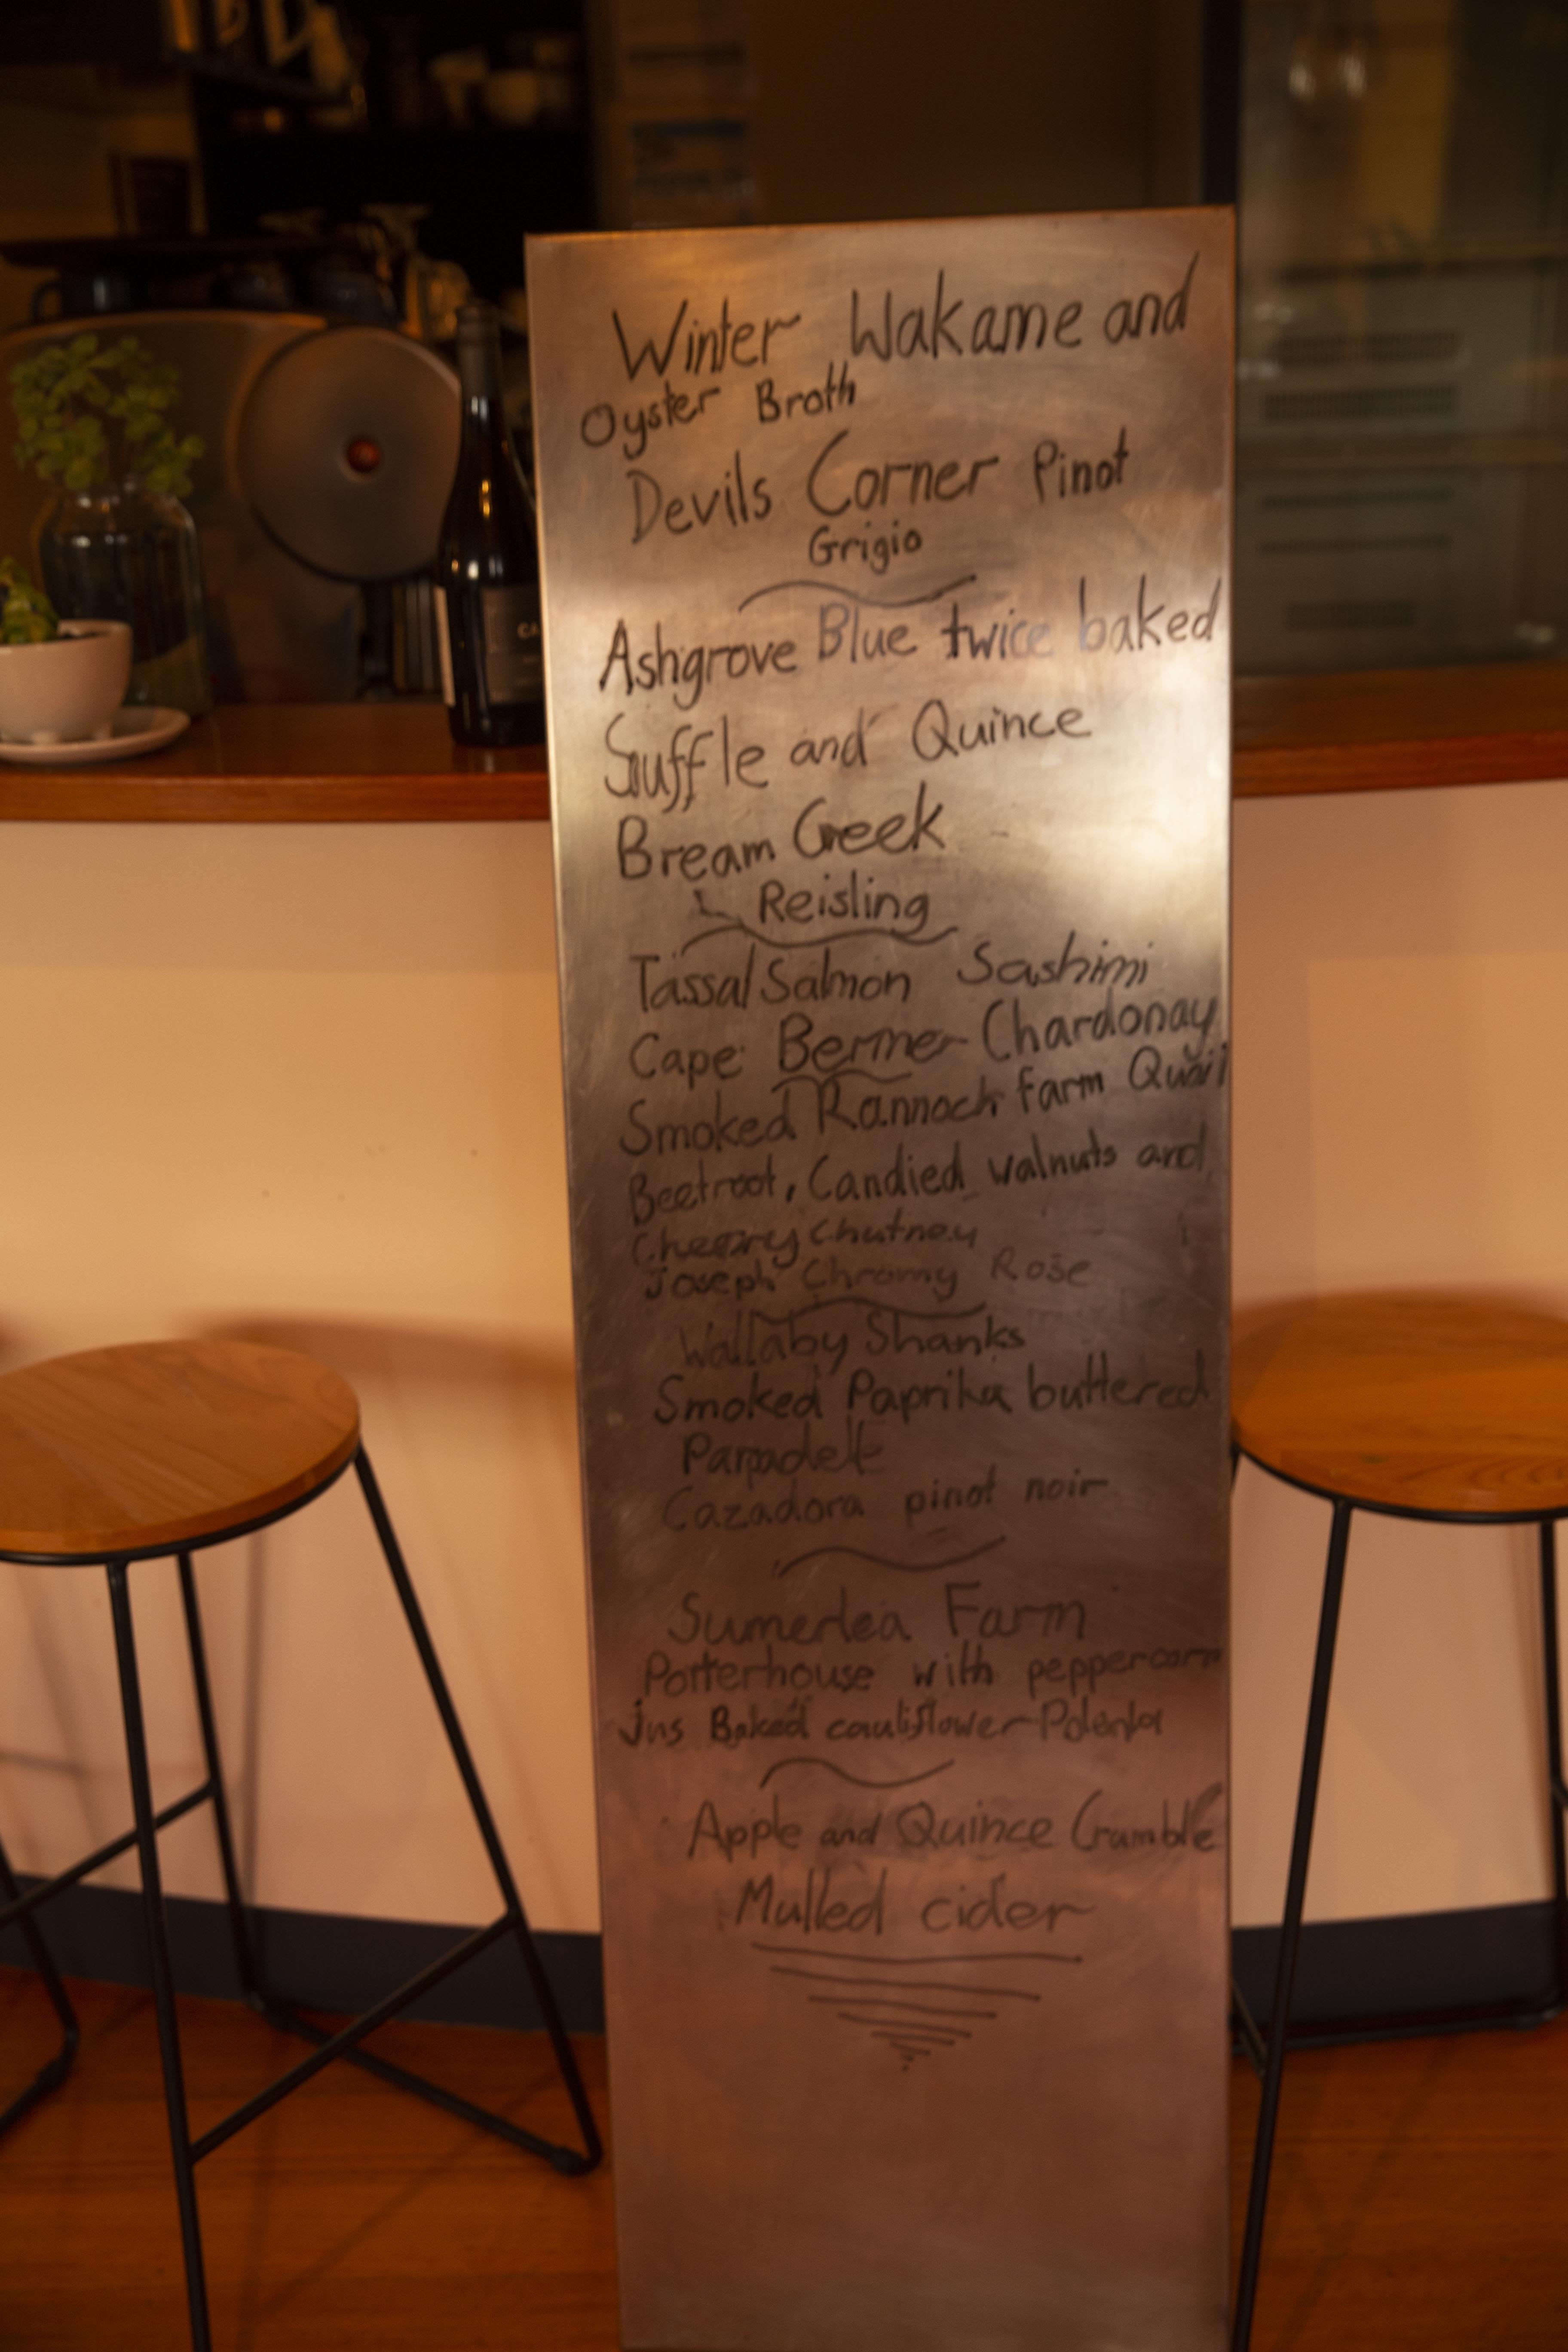 Winter Wakame and
Oyster Broth
Devils Corner Pinot
Grigio
Ashgrove Blue twice baked
Suffle and Quince
Bream Creek
Reisling
Tassal Salmon Sashimi
Cape Bernier Chardonay
Smoked Rannoch farm Quail
Beetroot, Candied walnuts and
Cherry Chutney
Joseph Chromy Rose
Wallaby Shanks
Smoked Paprika buttered
Parpadelle
Cazadora pinot noir
Sumerlea Farm
Porterhouse with peppercorn
jus Baked cauliflower Polenta
Apple and Quince Crumble
Mulled cider
CA